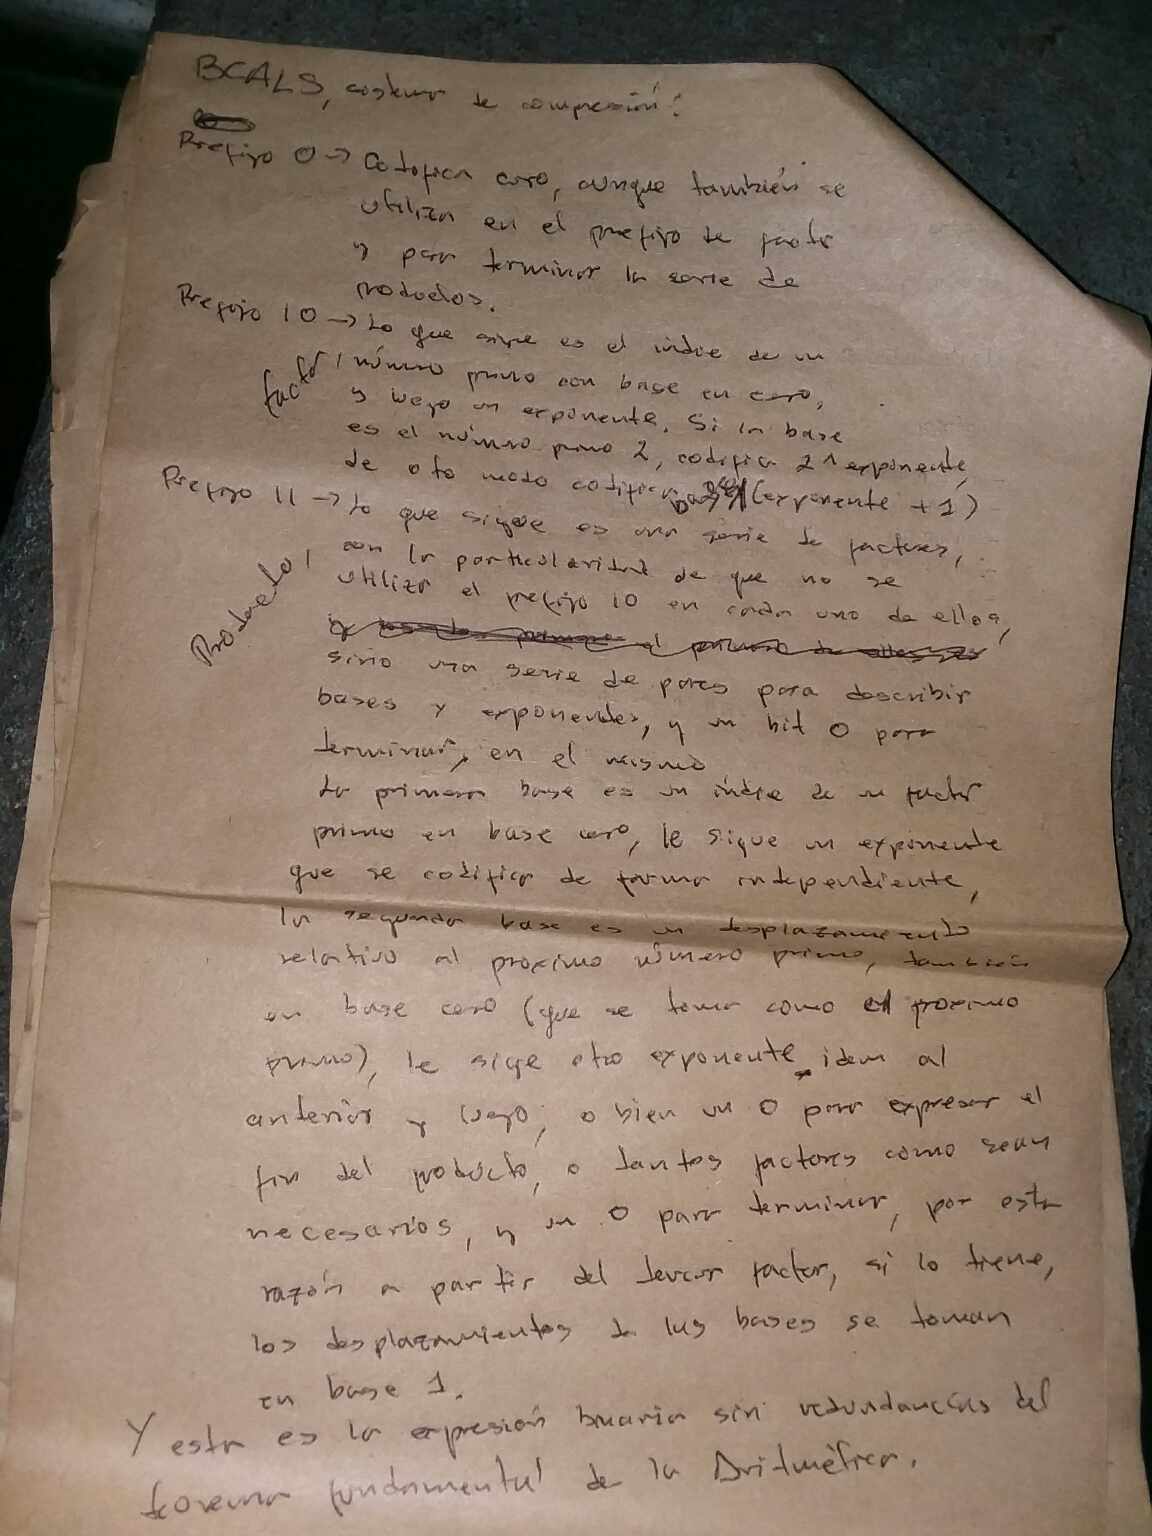 BCALS, sistema de compresión:
Prefijo 0 → Codifica cero, aunque también se
utiliza en el prefijo de factor
y para terminar la serie de
productos.
Prefijo 10 → Lo que sigue es el índice de un
factor, número primo con base en cero,
y luego un exponente. Si la base
es el número primo 2, codifica 2^exponente,
de otro modo codifica base^(exponente + 1)
Prefijo 11 → Lo que sigue es una serie de factores,
Producto, con la particularidad de que no se
utiliza el prefijo 10 en cada uno de ellos,
sino una serie de pares para describir
bases y exponentes, y un bit 0 para
terminar, en el mismo
La primera base es un índice de un factor
primo en base cero, le sigue un exponente
que se codifica de forma independiente,
la segunda base es un desplazamiento
relativo al próximo número primo, también
en base cero (que se toma como el próximo
primo), le sige otro exponente, idem al
anterior y luego, o bien un 0 para expresar el
fin del producto, o tantos factores como sean
necesarios, y un 0 para terminar, por esta
razón a partir del tercer factor, si lo tiene,
los desplazamientos de las bases se toman
en base 1.
Y esta es la expresión binaria sin redundancias del
teorema fundamental de la Aritmética.